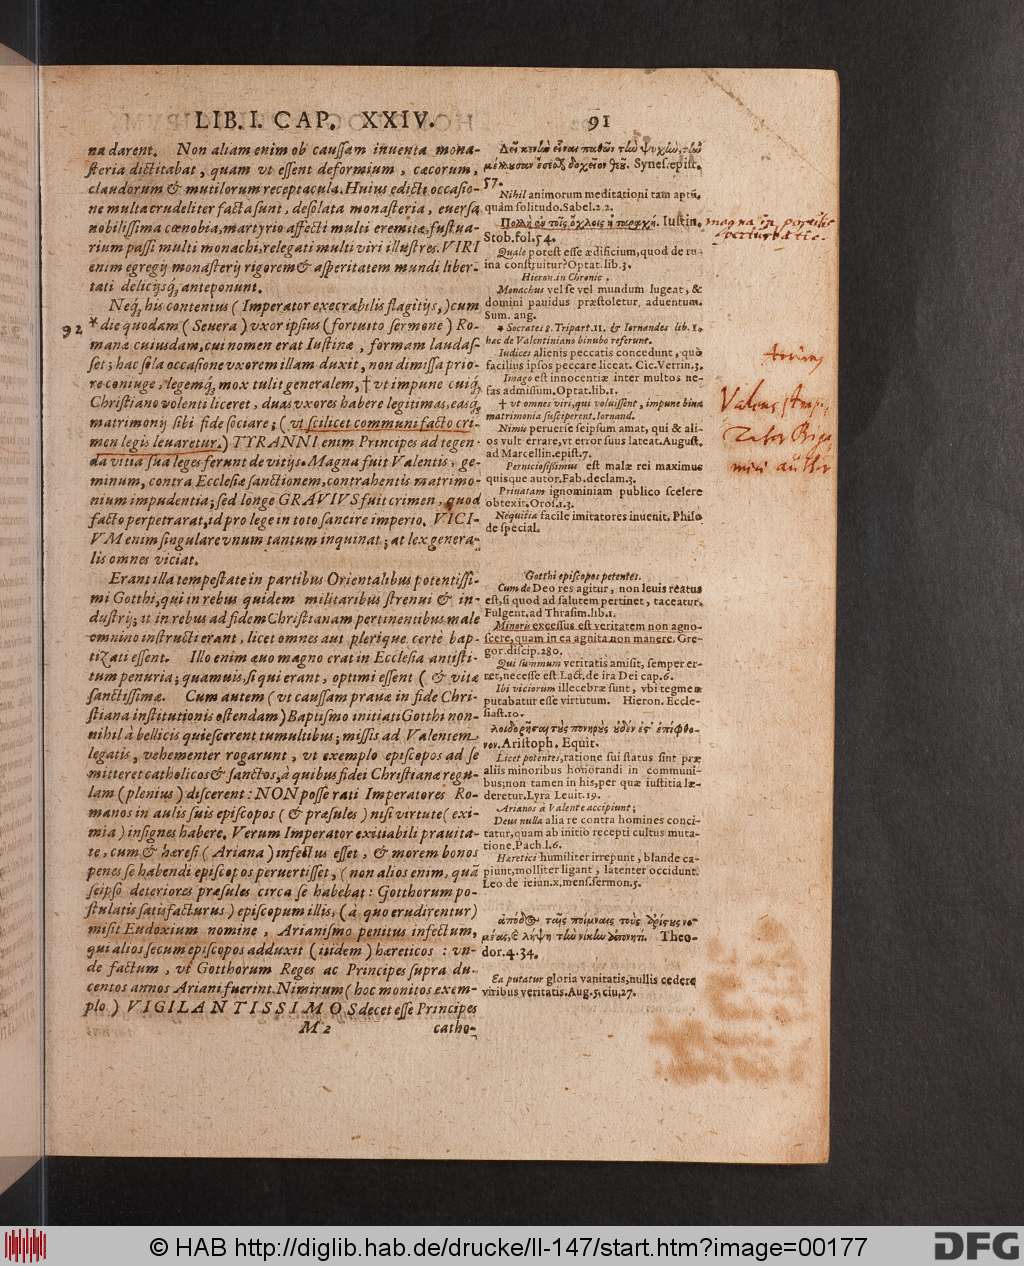 LIB. I. CAP. XXIV. 91
nadarent. Non aliam enim ob caussam inuenta mona-
steria dictitabat, quam vt essent deformium, cæcorum,
claudorum & mutilorum receptacula. Huius edicti occasio-
ne multa crudeliter facta sunt, desolata monasteria, euersa
nobilissima cœnobia, martyrio affecti multi eremitæ, fustua-
rium passi multi monachi, relegati multi viri illustres. VIRI
enim egregij monasterij rigorem & asperitatem mundi liber-
tati delicijsq́, anteponunt.
Neq́, his contentus (Imperator execrabilis flagitijs,) cum
92 * die quodam (Seuera) vxor ipsius (fortuito sermone) Ro-
manæ cuiusdam, cui nomen erat Iustinæ, formam laudas-
set; hac sola occasione vxorem illam duxit, non dimissa prio-
re coniuge. Legemq́, mox tulit generalem, † vt impune cuiq́,
Christiano volenti liceret, duas vxores habere legitimas, easq́,
matrimonij sibi fide sociare; (vt scilicet communi facto cri-
men legis leuaretur.) TYRANNI enim Principes ad tegen-
da vitia sua leges ferunt de vitijs. Magna fuit Valentis, ge-
minum, contra Ecclesiæ sanctionem, contrahentis matrimo-
nium impudentia; sed longe GRAVIVS fuit crimen, quod
facto perpetrarat, id pro lege in toto sancire imperio. VICI-
VM enim singulare vnum tantum inquinat; at lex genera-
lis omnes viciat.
Erant illa tempestate in partibus Orientalibus potentissi-
mi Gotthi, qui in rebus quidem militaribus strenui & in-
dustrij; at in rebus ad fidem Christianam pertinentibus male
omnino instructi erant, licet omnes aut plerique certè bap-
tizati essent. Illo enim æuo magno erat in Ecclesia antisti-
tum penuria; quamuis, si qui erant, optimi essent (& vitæ
sanctissimæ. Cum autem (vt caussam prauæ in fide Chri-
stiana institutionis ostendam) Baptismo initiati Gotthi non-
nihil à bellicis quiescerent tumultibus; missis ad Valentem
legatis, vehementer rogarunt, vt exemplo episcopos ad se
mitteret catholicos & sanctos, à quibus fidei Christianæ regu-
lam (plenius) discerent: NON posse rati Imperatores Ro-
manos in aulis suis episcopos (& præsules) nisi virtute (exi-
mia) insignes habere. Verum Imperator exitiabili prauita-
te, cum & hæresi (Ariana) infectus esset, & morem bonos
penes se habendi episcopos peruertisset, (non alios enim, quā
seipso deteriores præsules circa se habebat: Gotthorum po-
stulatis satisfacturus) episcopum illis, (à quo erudirentur)
misit Eudoxium nomine, Arianismo penitus infectum,
qui alios secum episcopos adduxit (itidem) hæreticos: vn-
de factum, vt Gotthorum Reges ac Principes supra du-
centos annos Ariani fuerint. Nimirum (hoc monitos exem-
plo) VIGILANTISSIMOS decet esse Principes
M 2 catho-
57.
Nihil animorum meditationi tam aptū,
quàm solitudo. Sabel. 2. 2.
Πολλὴ ἐν τοῖς ὄχλοις ἡ ταραχή. Iustin.
Stob. fol. 54.
Quale potest esse ædificium, quod de ru-
ina construitur? Optat. lib. 3.
Hieron. in Chronic.
Monachus vel se vel mundum lugeat, &
domini pauidus præstoletur, aduentum.
Sum. ang.
* Socrates 8. Tripart. 11. & Iornandes lib. 1.
hæc de Valentiniano binubo referunt.
Iudices alienis peccatis concedunt, quò
facilius ipsos peccare liceat. Cic. Verrin. 3.
Imago est innocentiæ inter multos ne-
fas admissum. Optat. lib. 1.
† vt omnes viri, qui voluissent, impune bina
matrimonia susciperent. Iornand.
Nimu peruerse seipsum amat, qui & ali-
os vult errare, vt error suus lateat. August.
ad Marcellin. epist. 7.
Perniciosissimus est malæ rei maximus
quisque autor. Fab. declam. 3.
Priuatam ignominiam publico scelere
obtexit. Oros. 1. 3.
Nequitia facile imitatores inuenit. Philo
de special.
Gotthi episcopos petentes.
Cum de Deo res agitur, non leuis reatus
est, si quod ad salutem pertinet, taceatur.
Fulgent. ad Thrasim. lib. 1.
Minoris excessus est veritatem non agno-
scere, quam in ea agnita non manere. Gre-
gor. discip. 280.
Qui summum veritatis amisit, semper er-
ret, necesse est. Lact. de ira Dei cap. 6.
Ibi viciorum illecebræ sunt, vbi tegmen
putabatur esse virtutum. Hieron. Eccle-
siast. 10.
Aristoph. Equit.
Licet potentes, ratione sui status sint præ
aliis minoribus honorandi in communi-
bus; non tamen in his, per quæ iustitia læ-
deretur. Lyra Leuit. 19.
Arianos à Valente accipiunt;
Deus nulla alia re contra homines conci-
tatur, quam ab initio recepti cultus muta-
tione. Pach. l. 6.
Hæretici humiliter irrepunt, blande ca-
piunt, molliter ligant, latenter occidunt.
Leo de ieiun. x. mens. sermon. 5.
Theo-
dor. 4. 34.
Ea putatur gloria vanitatis, nullis cedere
viribus veritatis. Aug. 5. ciu. 27.
© HAB http://diglib.hab.de/drucke/ll-147/start.htm?image=00177
DFG